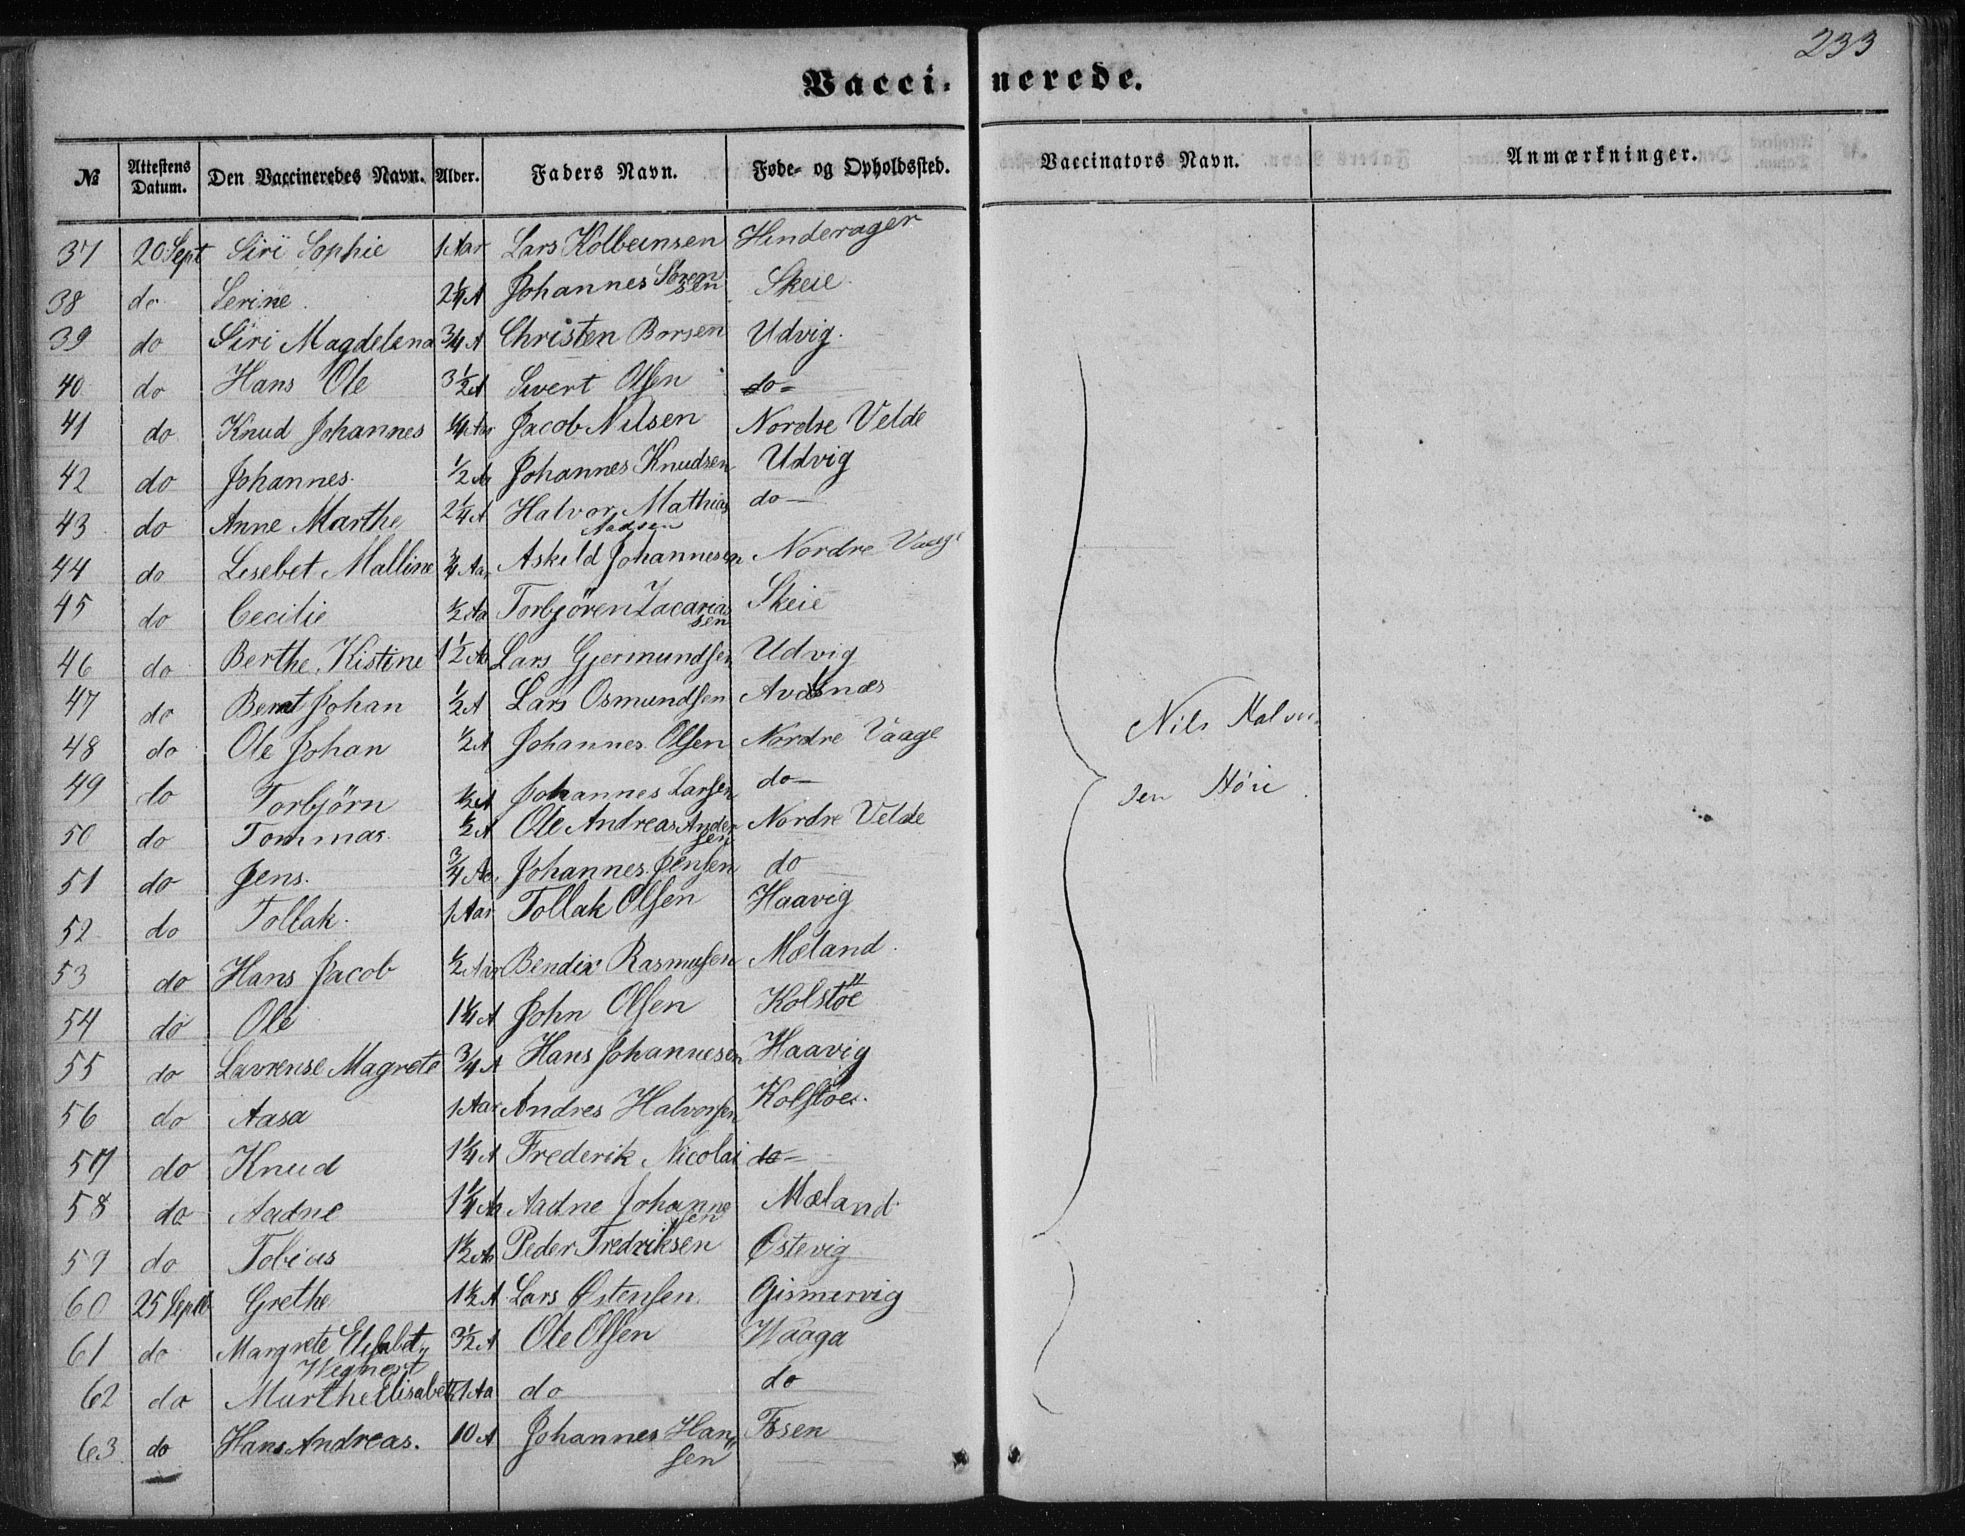 233
Vacci- nerede.
№ Attestens Datum. Den Vaccineredes Navn. Alder. Faders Navn. Føde- og Opholdssted. Vaccinators Navn. Anmærkninger.
37 20 Sept Siri Sophie 1 Aar Lars Kolbeinsen Hinderager
38 do Serine. 2 1/4 A Johannes Sørensen Skeie
39 do Siri Magdelena 3/4 A Christen Borsen Udvig.
40 do Hans Ole 3 1/2 A Sivert Olsen do-
41 do Knud Johannes 1/4 Aar Jacob Nilsen Nordre Velde
42 do Johannes. 1/2 Aa Johannes Knudsen Udvig
43 do Anne Marthe 2 1/4 A Halvor Mathias do-
Aadsen
44 do Lisebet Malline 3/4 Aar Askild Johannesen Nordre Vaage
45 do Cecilie 1/2 Aa Torbjören Zacariassen Skeie
46 do Berthe Kistine 1 1/2 Aa Lars Gjermundsen Udvig
47 do Bernt Johan 1/2 A Lars Osmundsen Avaldsnæs
48 do Ole Johan 1/2 A Johannes Olsen Nordre Vaage
Nils Halvor
49 do Torbjørn 1/2 A Johannes Larsen do-
sen Høie
50 do Tommas. 1/2 A Ole Andreas Andersen Nordre Velde
51 do Jens. 3/4 Aa. Johannes Jensen do
52 do Tollak. 1 Aar Tollak Olsen Haavig
53 do Hans Jacob 1/2 Aar Bendix Rasmusen Mæland.
54 do Ole 1 1/4 A John Olsen Kolstöe
55 do Lavrense Magrete 3/4 A Hans Johannesen Haavig
56 do Aasa 1 Aar Andres Halvorsen Kolstöe.
57 do Knud 1 1/4 A Frederik Nicolai do-
58 do Aadne 1 1/4 Aa Aadne Johannesen Mæland
59 do Tobias 1 1/2 Aa Peder Fredriksen Østevig
60 25 Septb Grethe 1 1/2 A Lars Østensen. Gismervig
61 do Margrete Elisabet 3 1/2 A Ole Olsen Waaga
62 do Marthe Elisabeth 1 Aa do do
63 do Hans Andreas. 10 A Johannes Hansen Fosen